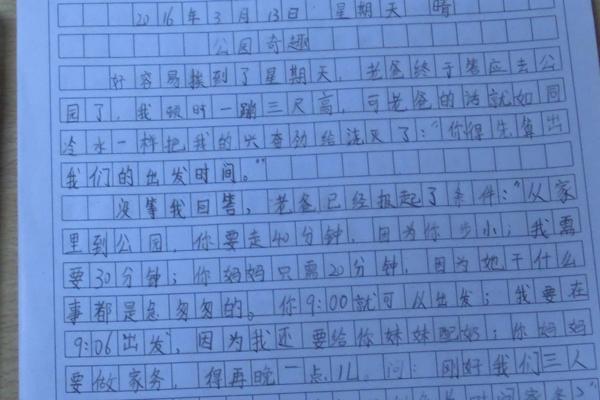 2016年3月13日 星期天 晴
公园奇趣
好容易挨到了星期天，老爸终于答应去公
园了，我顿时一蹦三尺高，可老爸的话就如同
冷水一样把我的兴奋劲给浇灭了：“你得先算出
我们的出发时间。”
没等我回答，老爸已经报起了条件：“从家
里到公园，你要走40分钟，因为你步小；我需
要30分钟；你妈妈只需20分钟，因为她干什么
事都是急匆匆的。你9:00就可以出发；我要在
9:06出发，因为我还要给你妹妹配奶；你妈妈
要做家务，得再晚一点儿。问：刚好我们三人